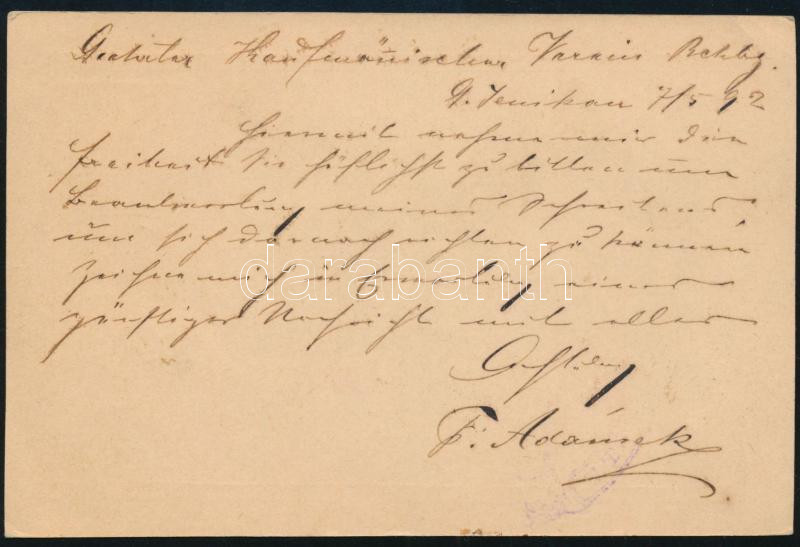 Geehrter Kaufmännischer Verein Rchbg.
G. Jenikau 7/5 92
Hiermit nehme mir die
Freiheit Sie höflichst zu bitten um
Beantwortung meines Schreibens
um sich darnach richten zu können
zeichne mich in Erwartung einer
günstigen Nachricht mit aller
Achtung
F. Adámek
darabanth